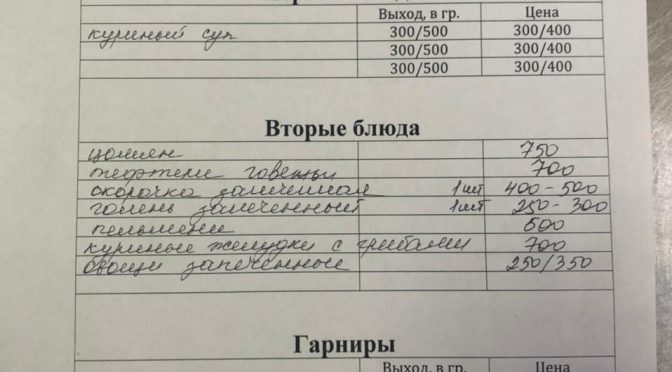 Выход, в гр. Цена
куриный суп 300/500 300/400
300/500 300/400
300/500 300/400
Вторые блюда
цомян 750
тефтели говяжьи 700
окорочка запеченная 1шт 400-500
голень запеченный 1шт 250-300
пельмени 500
куриные желудки с грибами 700
овощи запеченные 250/350
Гарниры
Выход, в гр. Цена